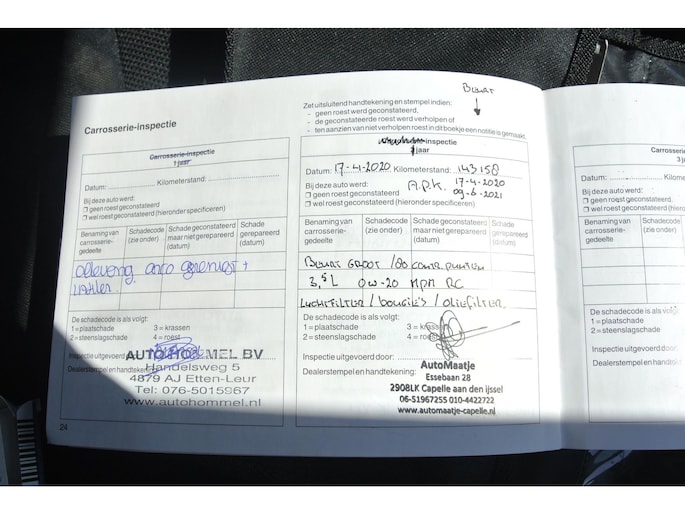 Carrosserie-inspectie
Carrosserie-inspectie
1 jaar
Datum: Kilometerstand:
Bij deze auto werd:
geen roest geconstateerd
wel roest geconstateerd (hieronder specificeren)
Benaming van carrosserie-gedeelte
Schadecode (zie onder)
Schade geconstateerd maar niet gerepareerd (datum)
Schade gerepareerd (datum)
gereinigt +
De schadecode is als volgt:
1 = plaatschade 3 = krassen
2 = steenslagschade 4 = roest
Inspectie uitgevoerd
Dealerstempel en handtekening
AUTO HOMMEL BV
Handelsweg 5
4879 AJ Etten-Leur
Tel: 076-5015967
www.autohommel.nl
24
BEURT
Zet uitsluitend handtekening en stempel indien:
- geen roest werd geconstateerd,
- de geconstateerde roest werd verholpen of
- ten aanzien van niet verholpen roest in dit boekje een notitie is gemaakt.
-inspectie
jaar
Datum: 17-4-2020 Kilometerstand: 143158
Bij deze auto werd: A.P.K. 17-4-2020
geen roest geconstateerd 09-6-2021
wel roest geconstateerd (hieronder specificeren)
Benaming van carrosserie-gedeelte
Schadecode (zie onder)
Schade geconstateerd maar niet gerepareerd (datum)
Schade gerepareerd (datum)
BEURT GROOT / 80 CONTR PUNTEN
3,5 L 0W-20 MPM RC
LUCHTFILTER / BOUGIE'S / OLIEFILTER
De schadecode is als volgt:
1 = plaatschade 3 = krassen
2 = steenslagschade 4 = roest
Inspectie uitgevoerd door:
Dealerstempel en handtekening:
AutoMaatje
Essebaan 28
2908LK Capelle aan den ijssel
06-51967255 010-4422722
www.automaatje-capelle.nl
Carrosserie
3 ja
Datum: Kilo
Bij deze auto werd:
geen roest geconstateerd
wel roest geconstateerd (hi
Benaming van carrosserie-gedeelte
Schadecode (zie onder)
De schadecode is als volgt:
1 = plaatschade
2 = steenslagschade
Inspectie uitgevoerd door:
Dealerstempel en handteke